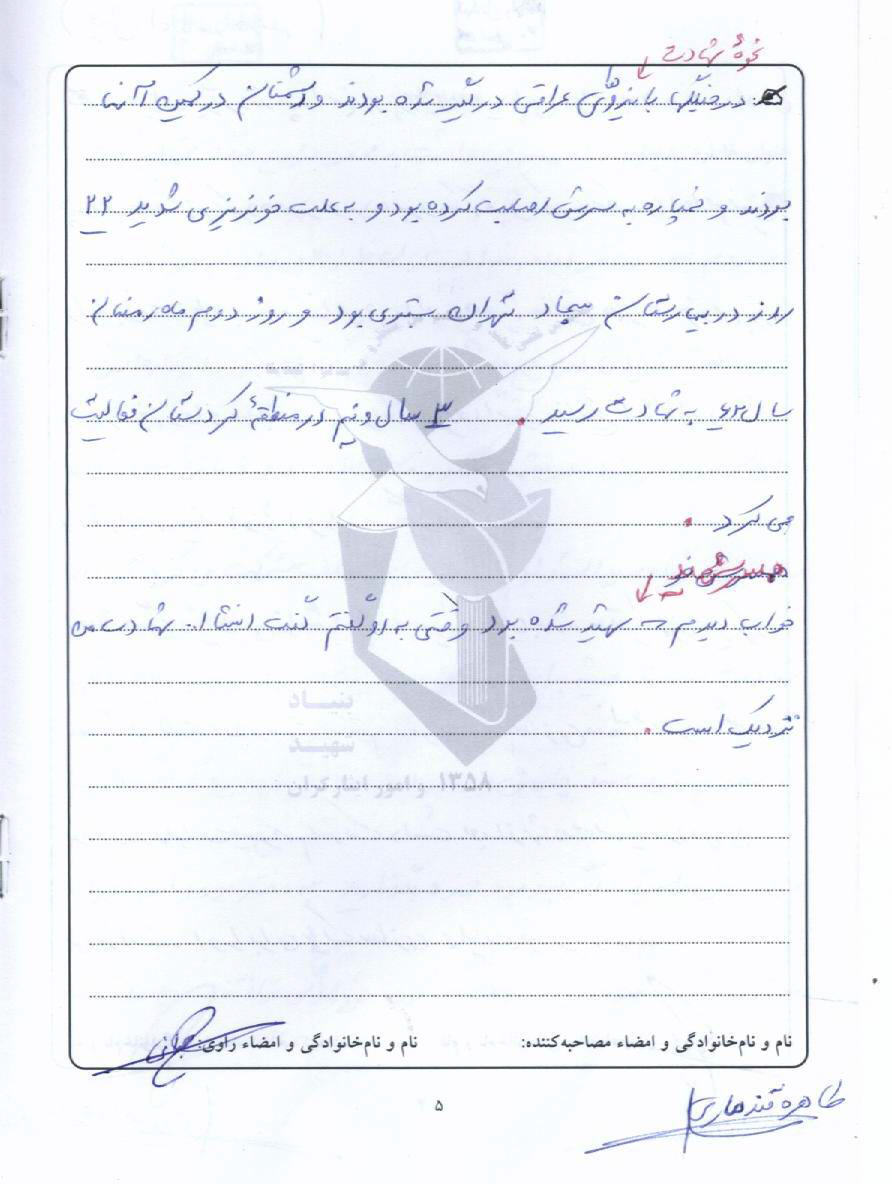 نحوهٔ شهادت
در جنگلها با نیروهای عراقی درگیر شده بودند و دشمنان در کمین آنها
بودند و خمپاره به سرش اصابت کرده بود و به علت خونریزی شدید ۲۲
روز در بیمارستان تهران بستری بود و روز دوم ماه رمضان
سال ۶۲ به شهادت رسید . ۳ سال و نیم در منطقهٔ کردستان فعالیت
می کرد .
خواب دیدم که شهید شده بود وقتی به او گفتم گفت انشاا.. شهادت من
نزدیک است .
بنیاد
شهید
و امور ایثارگران ۱۳۵۸
نام و نام‌خانوادگی و امضاء مصاحبه‌کننده: نام و نام‌خانوادگی و امضاء راوی:
طاهره قندهاری
۵